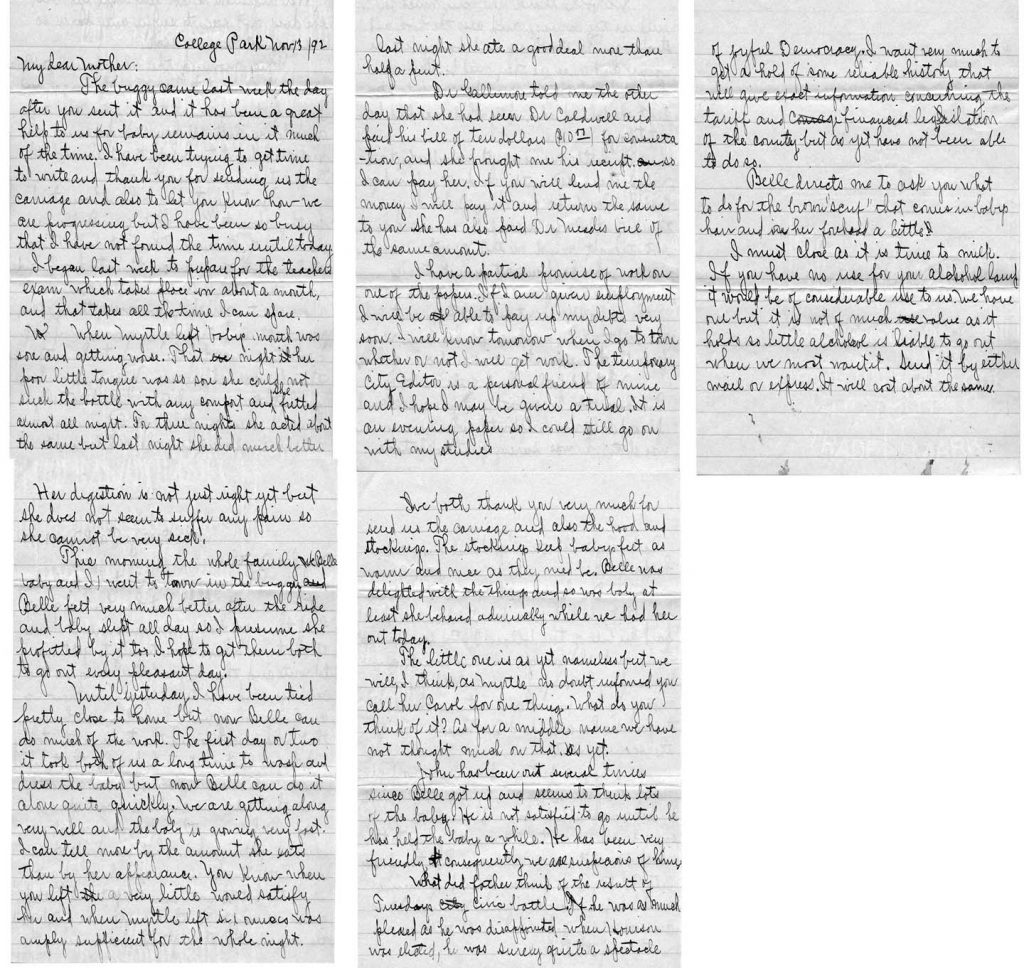 College Park Nov 13/92
My dear Mother:
The buggy came last week the day
after you sent it and it has been a great
help to us for baby remains in it much
of the time. I have been trying to get time
to write and thank you for sending us the
carriage and also to let you know how we
are progressing but I have been so busy
that I have not found the time until today
I began last week to prepare for the teachers
exam which takes place in about a month,
and that takes all the time I can spare.
When Myrtle left baby's mouth was
sore and getting worse. That night her
poor little tongue was so sore she could not
suck the bottle with any comfort and she fretted
almost all night. For three nights she acted about
the same but last night she did much better
Her digestion is not just right yet but
she does not seem to suffer any pain so
she cannot be very sick.
This morning the whole family, Belle
baby and I, went to town in the buggy and
Belle felt very much better after the ride
and baby slept all day so I presume she
profitted by it too. I hope to get them both
to go out every pleasant day.
Until yesterday I have been tied
pretty close to home but now Belle can
do much of the work. The first day or two
it took both of us a long time to wash and
dress the baby but now Belle can do it
alone quite quickly. We are getting along
very well and the baby is growing very fast.
I can tell more by the amount she eats
than by her appearance. You know when
you left a very little would satisfy
her and when Myrtle left six ounces was
amply sufficient for the whole night.
last night she ate a good deal more than
half a pint.
Dr Gallimore told me the other
day that she had seen Dr Caldwell and
paid his bill of ten dollars for consulta
-tion, and she brought me his receipt so
I can pay her. If you will lend me the
money I will pay it and return the same
to you she has also paid Dr Meads bill of
the same amount.
I have a partial promise of work on
one of the papers. If I am given employment
I will be able to pay up my debts very
soon. I will know tomorrow when I go to town
whether or not I will get work. The temporary
City Editor is a personal friend of mine
and I hope I may be given a trial. It is
an evening paper so I could still go on
with my studies
We both thank you very much for
send us the carriage and also the hood and
stockings. The stockings keep baby's feet as
warm and nice as they need be. Belle was
delighted with the things and so was baby at
least she behaved admirably while we had her
out today.
The little one is as yet nameless but we
will, I think, as Myrtle no doubt informed you
call her Carol for one thing. What do you
think of it? As for a middle name we have
not thought much on that as yet.
John has been out several times
since Belle got up and seems to think lots
of the baby. He is not satisfied to go until he
has held the baby a while. He has been very
friendly consequently we are suspicious of him.
What did father think of the result of
Tuesdays civic battle. If he was as much
pleased as he was disappointed when Harrison
was elected, he was surely quite a spectacle
of joyful Democracy. I want very much to
get a hold of some reliable history that
will give exact information concerning the
tariff and financial legislation
of the country but as yet have not been able
to do so.
Belle directs me to ask you what
to do for the brown "scurf" that comes in baby's
hair and on her forehead a little?
I must close as it is time to milk.
If you have no use for your alcohol lamp
it would be of considerable use to us. We have
one but it is not of much value as it
holds so little alcohol is liable to go out
when we most want it. Send it by either
mail or express. It will cost about the same.